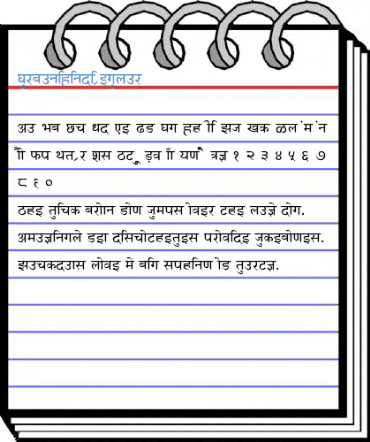 घुरबउनहिनिदि्रइगुलउर
अउ भब छच धद एइ ढड घग हही ि झज खक ळल ंम ंन
ौ फप थत ्र र शस ठट ू ड़व ाँ यण ै त्रज्ञ १ २ ३ ४ ५ ६ ७
८ ९ ०
ठहइ तुचिक बरोन डोण जुमपस ोवइर टहइ लउज्ञे दोग.
अमउज्ञनिगले डइा दसिचोटहइतुइस परोवदिइ जुकइबोणइस.
झउचकदउास लोवइ मे बगि सपहनिण ोड तुउरटज्ञ.